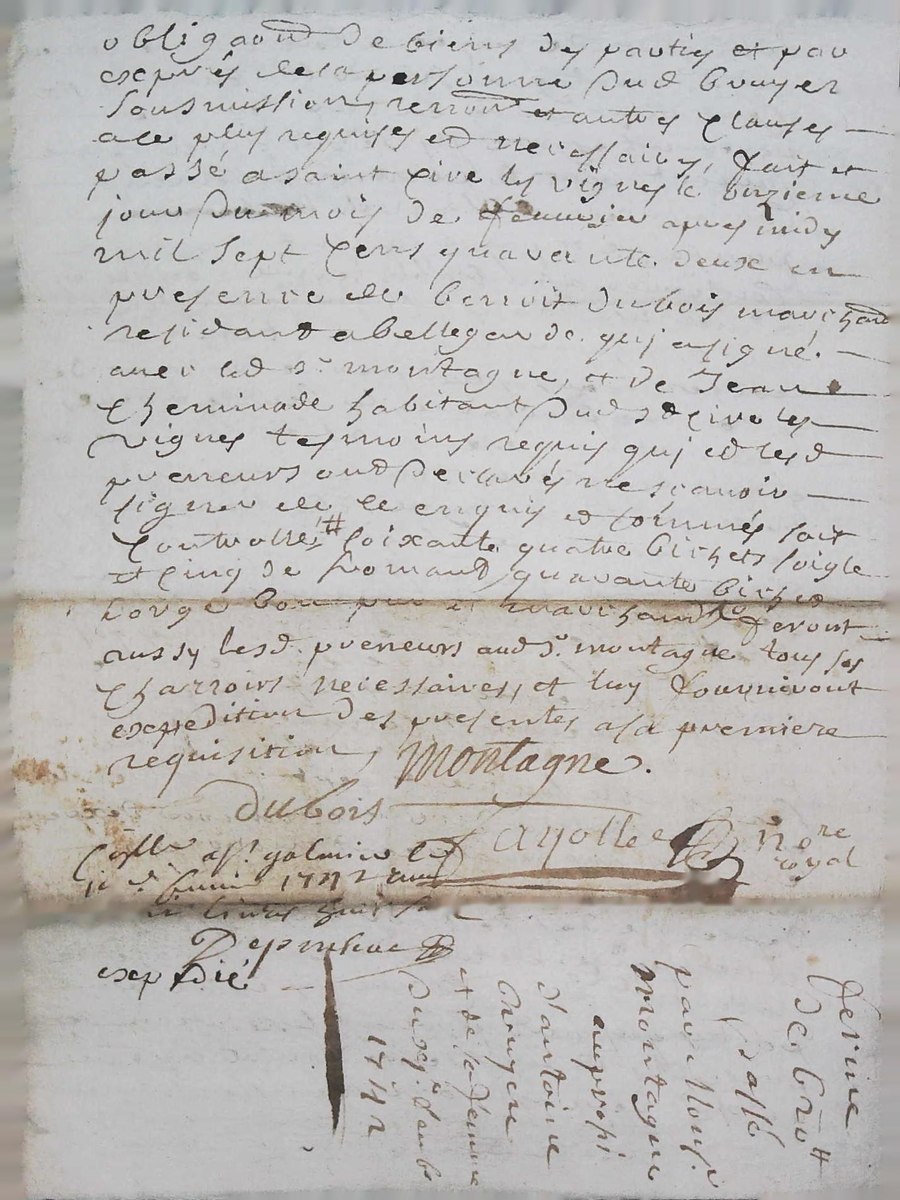 obligaõn de biens des parties et par
exprés de la personne dud bruyer
sousmissions, renõns et autres clauses
ale plus requises et necessaires, fait et
passé a saint cire les vignes le onzieme
jour du mois de feuurier apres midy
mil sept cens quarante deux en
presence de benoit dubois marchand
residant abellegarde qui a signé
auec led sr montagne, et de Jean
cheminade habitant dud st cire les
vignes tesmoins requis qui et lesd
preneurs ont declarés ne sçauoir
signer de ce enquis et sommés soit
controllé, # soixante quatre bichets soigle
et cinq de fromant, quarante bichet
dorge bon pur et marchand, feront
aussy lesd. preneurs aud sr montagne tous ses
charroirs necessaires, et luy fourniront
expedition des presentes asa premiere
requisition,
montagne.
dubois
nore
royal
galmier le
1742
livres
expedié
ferme
passé
par Monsr
Montagne
au
d'antoine
bruyere
et de sa femme
1742